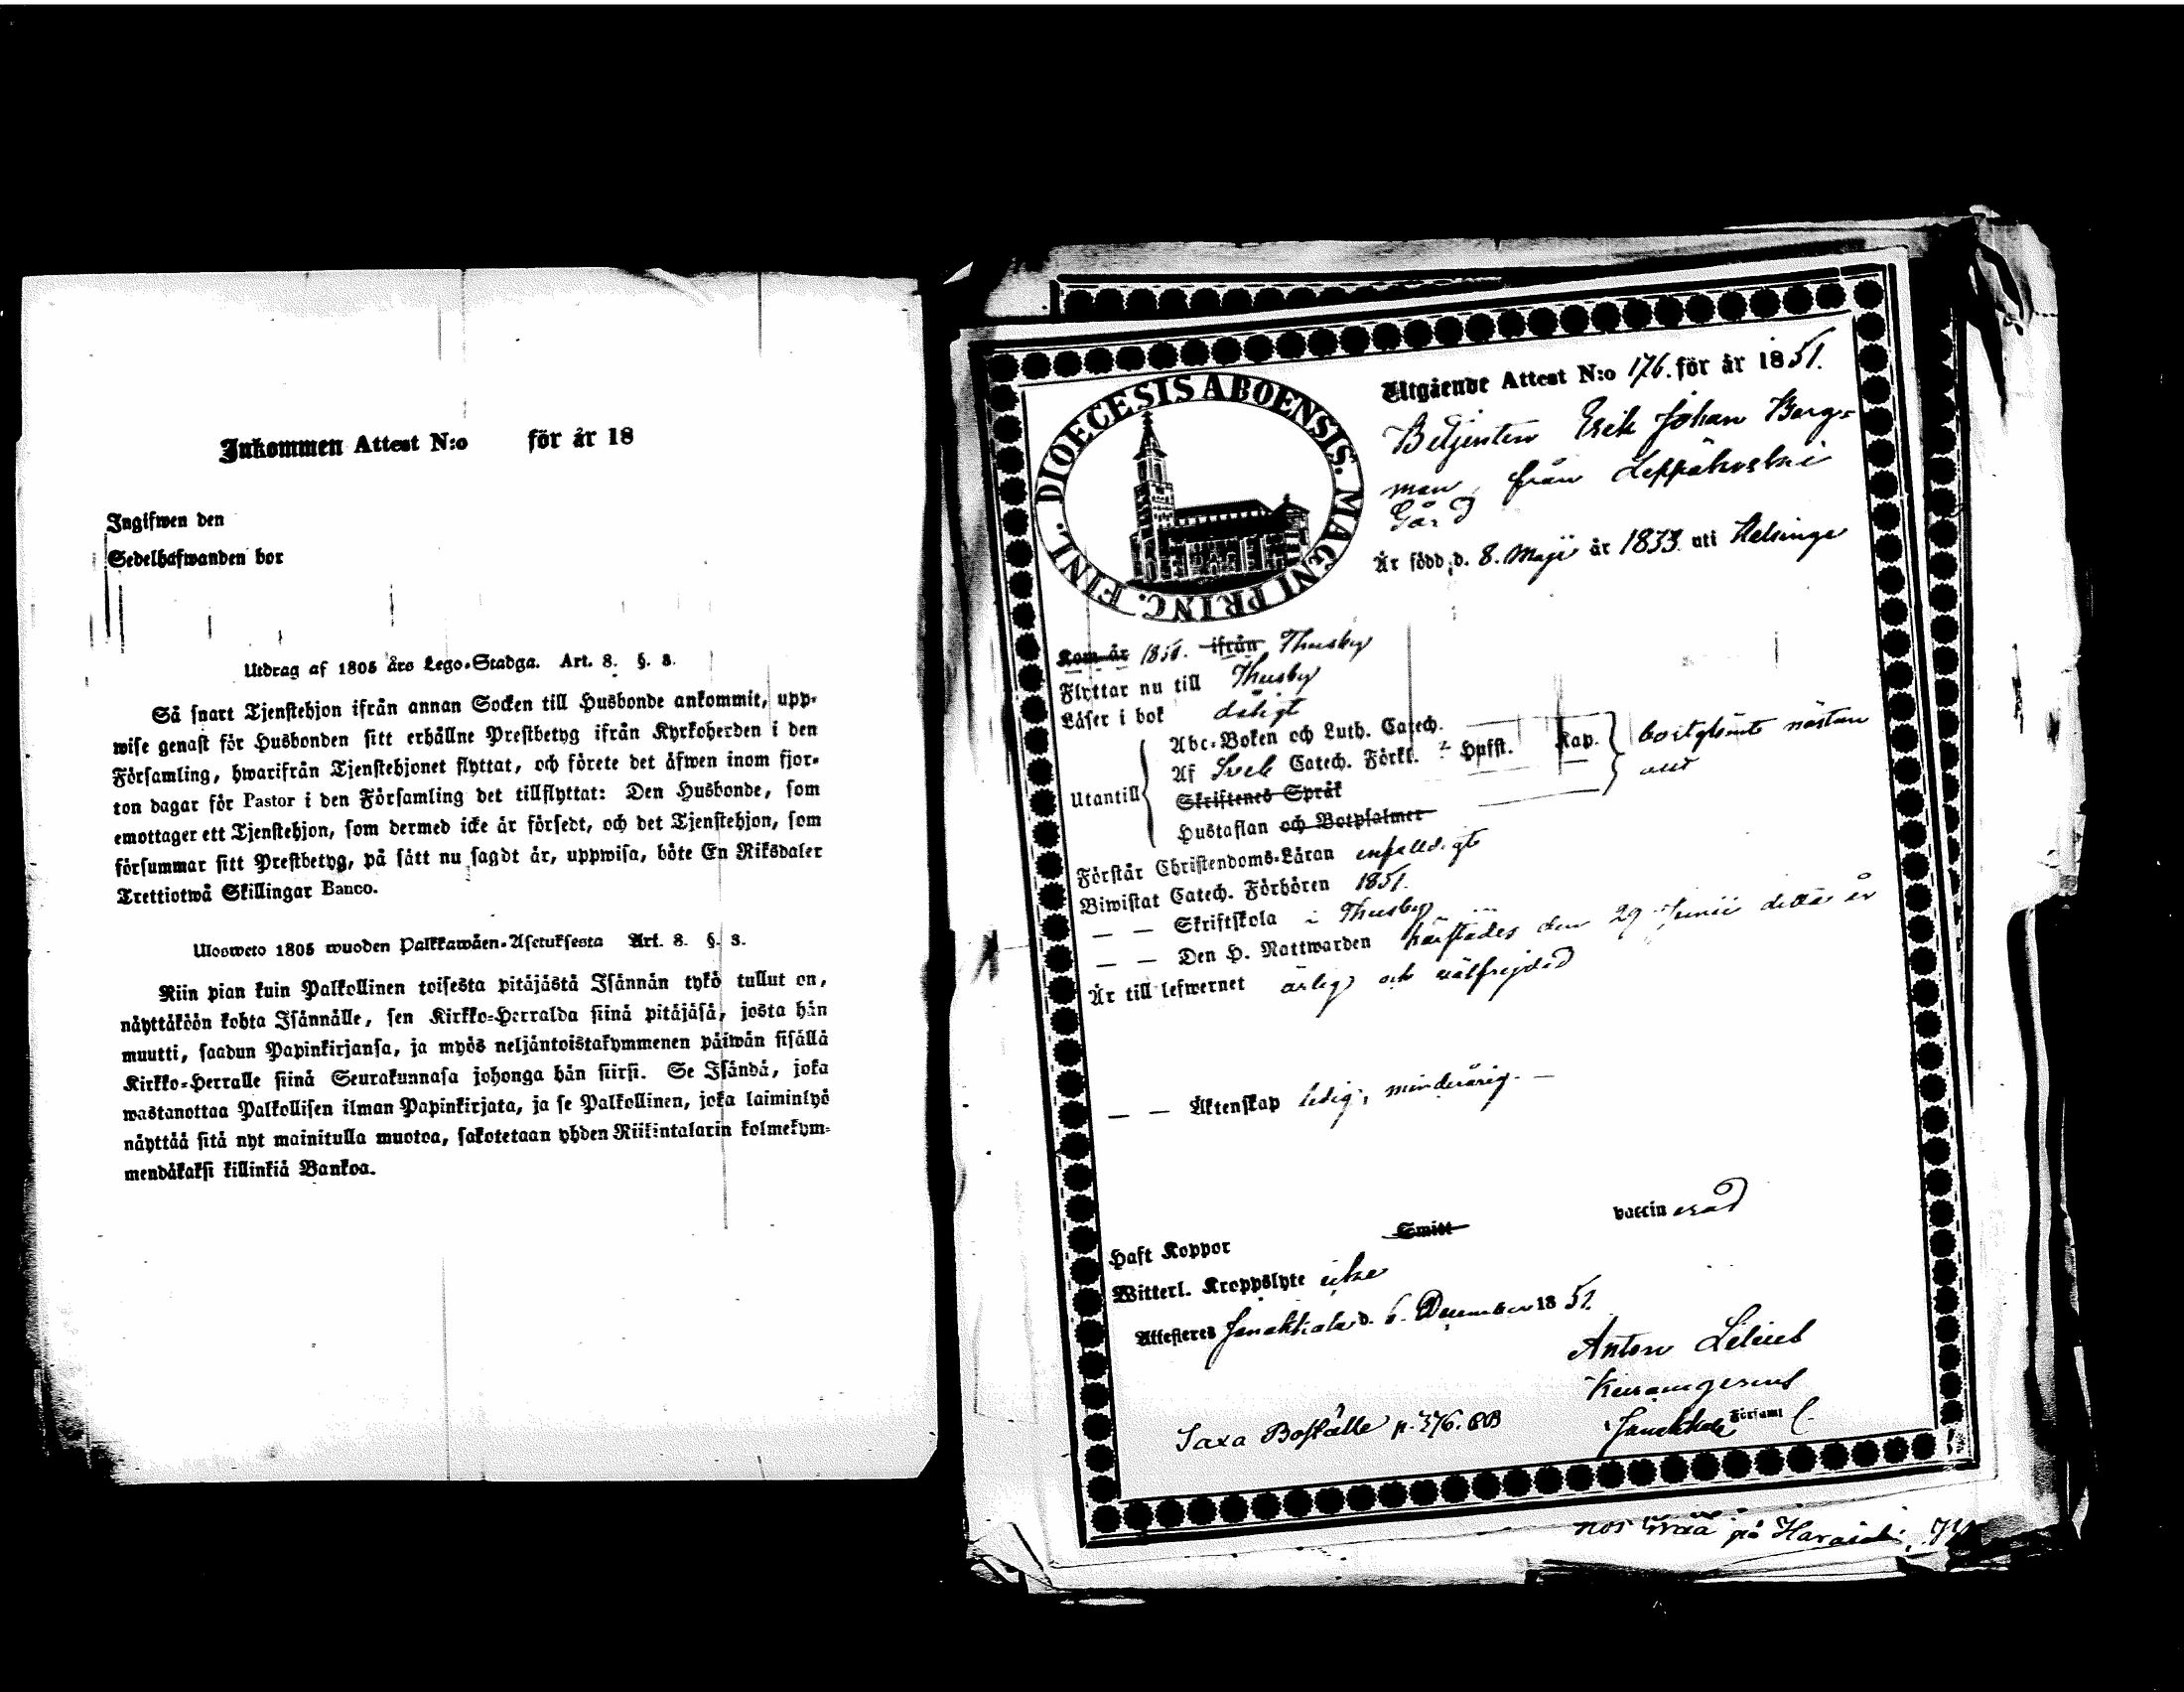 Inkommen Attest N:o för år 18
Ingifwen den
Sedelhafwanden bor
Utdrag af 1805 års Lego-Stadga. Art. 8. §. 3.
Så snart Tjenstehjon ifrån annan Socken till Husbonde ankommit, upp-
wise genast för Husbonden sitt erhållne Prestbetyg ifrån Kyrkoherden i den
Församling, hwarifrån Tjenstehjonet flyttat, och förete det äfwen inom fjor-
ton dagar för Pastor i den Församling det tillflyttat: Den Husbonde, som
emottager ett Tjenstehjon, som dermed icke är försedt, och det Tjenstehjon, som
försummar sitt Prestbetyg, på sätt nu sagdt är, uppwisa, böte En Riksdaler
Trettiotwå Skillingar Banco.
Ulosweto 1805 wuoden Palkkawäen-Asetuksesta Art. 8. §. 3.
Niin pian kuin Palkollinen toisesta pitäjästä Isännän tykö tullut on,
näyttäköön kohta Isännälle, sen Kirkko-Herralda siinä pitäjäsä, josta hän
muutti, saadun Papinkirjansa, ja myös neljäntoistakymmenen päiwän sisällä
Kirkko-Herralle siinä Seurakunnasa johonga hän siirsi. Se Isändä, joka
wastanottaa Palkollisen ilman Papinkirjata, ja se Palkollinen, joka laiminlyö
näyttää sitä nyt mainitulla muotoa, sakotetaan yhden Riikintalarin kolmekym-
mendäkaksi killinkiä Bankoa.
DIOECESIS ABOENSIS. MAGNI PRINC. FINL.
Utgående Attest N:o 176. för år 1851.
Betjenten Erik Johan Berg-
man, från Leppäkoski
Gård
Är född d. 8. Maji år 1833. uti Helsinge
Kom år 1851. ifrån Thusby
Flyttar nu till Thusby
Läser i bok dåligt
Utantill
Abc-Boken och Luth. Catech.
Af Sveb Catech. Förkl. 2 Hufst. Kap.
bortglömt nästan
allt
Skriftenes Språk
Hustaflan och Botpsalmer
Förstår Christendoms-Läran enfaldigt
Biwistat Catech. Förhören 1851.
— — Skriftskola i Thusby
— — Den H. Nattwarden härstädes den 29 Junii detta år
Är till lefwernet ärlig och välfrejdad
— — Äktenskap ledig, minderårig. —
Haft Koppor Smitt vaccinerad
Witterl. Kroppslyte icke
Attesteres Janakkala d. 6. December 1851.
Anton Lilius
Janakkala Församl
Saxa Boställe p. 376. CB
på